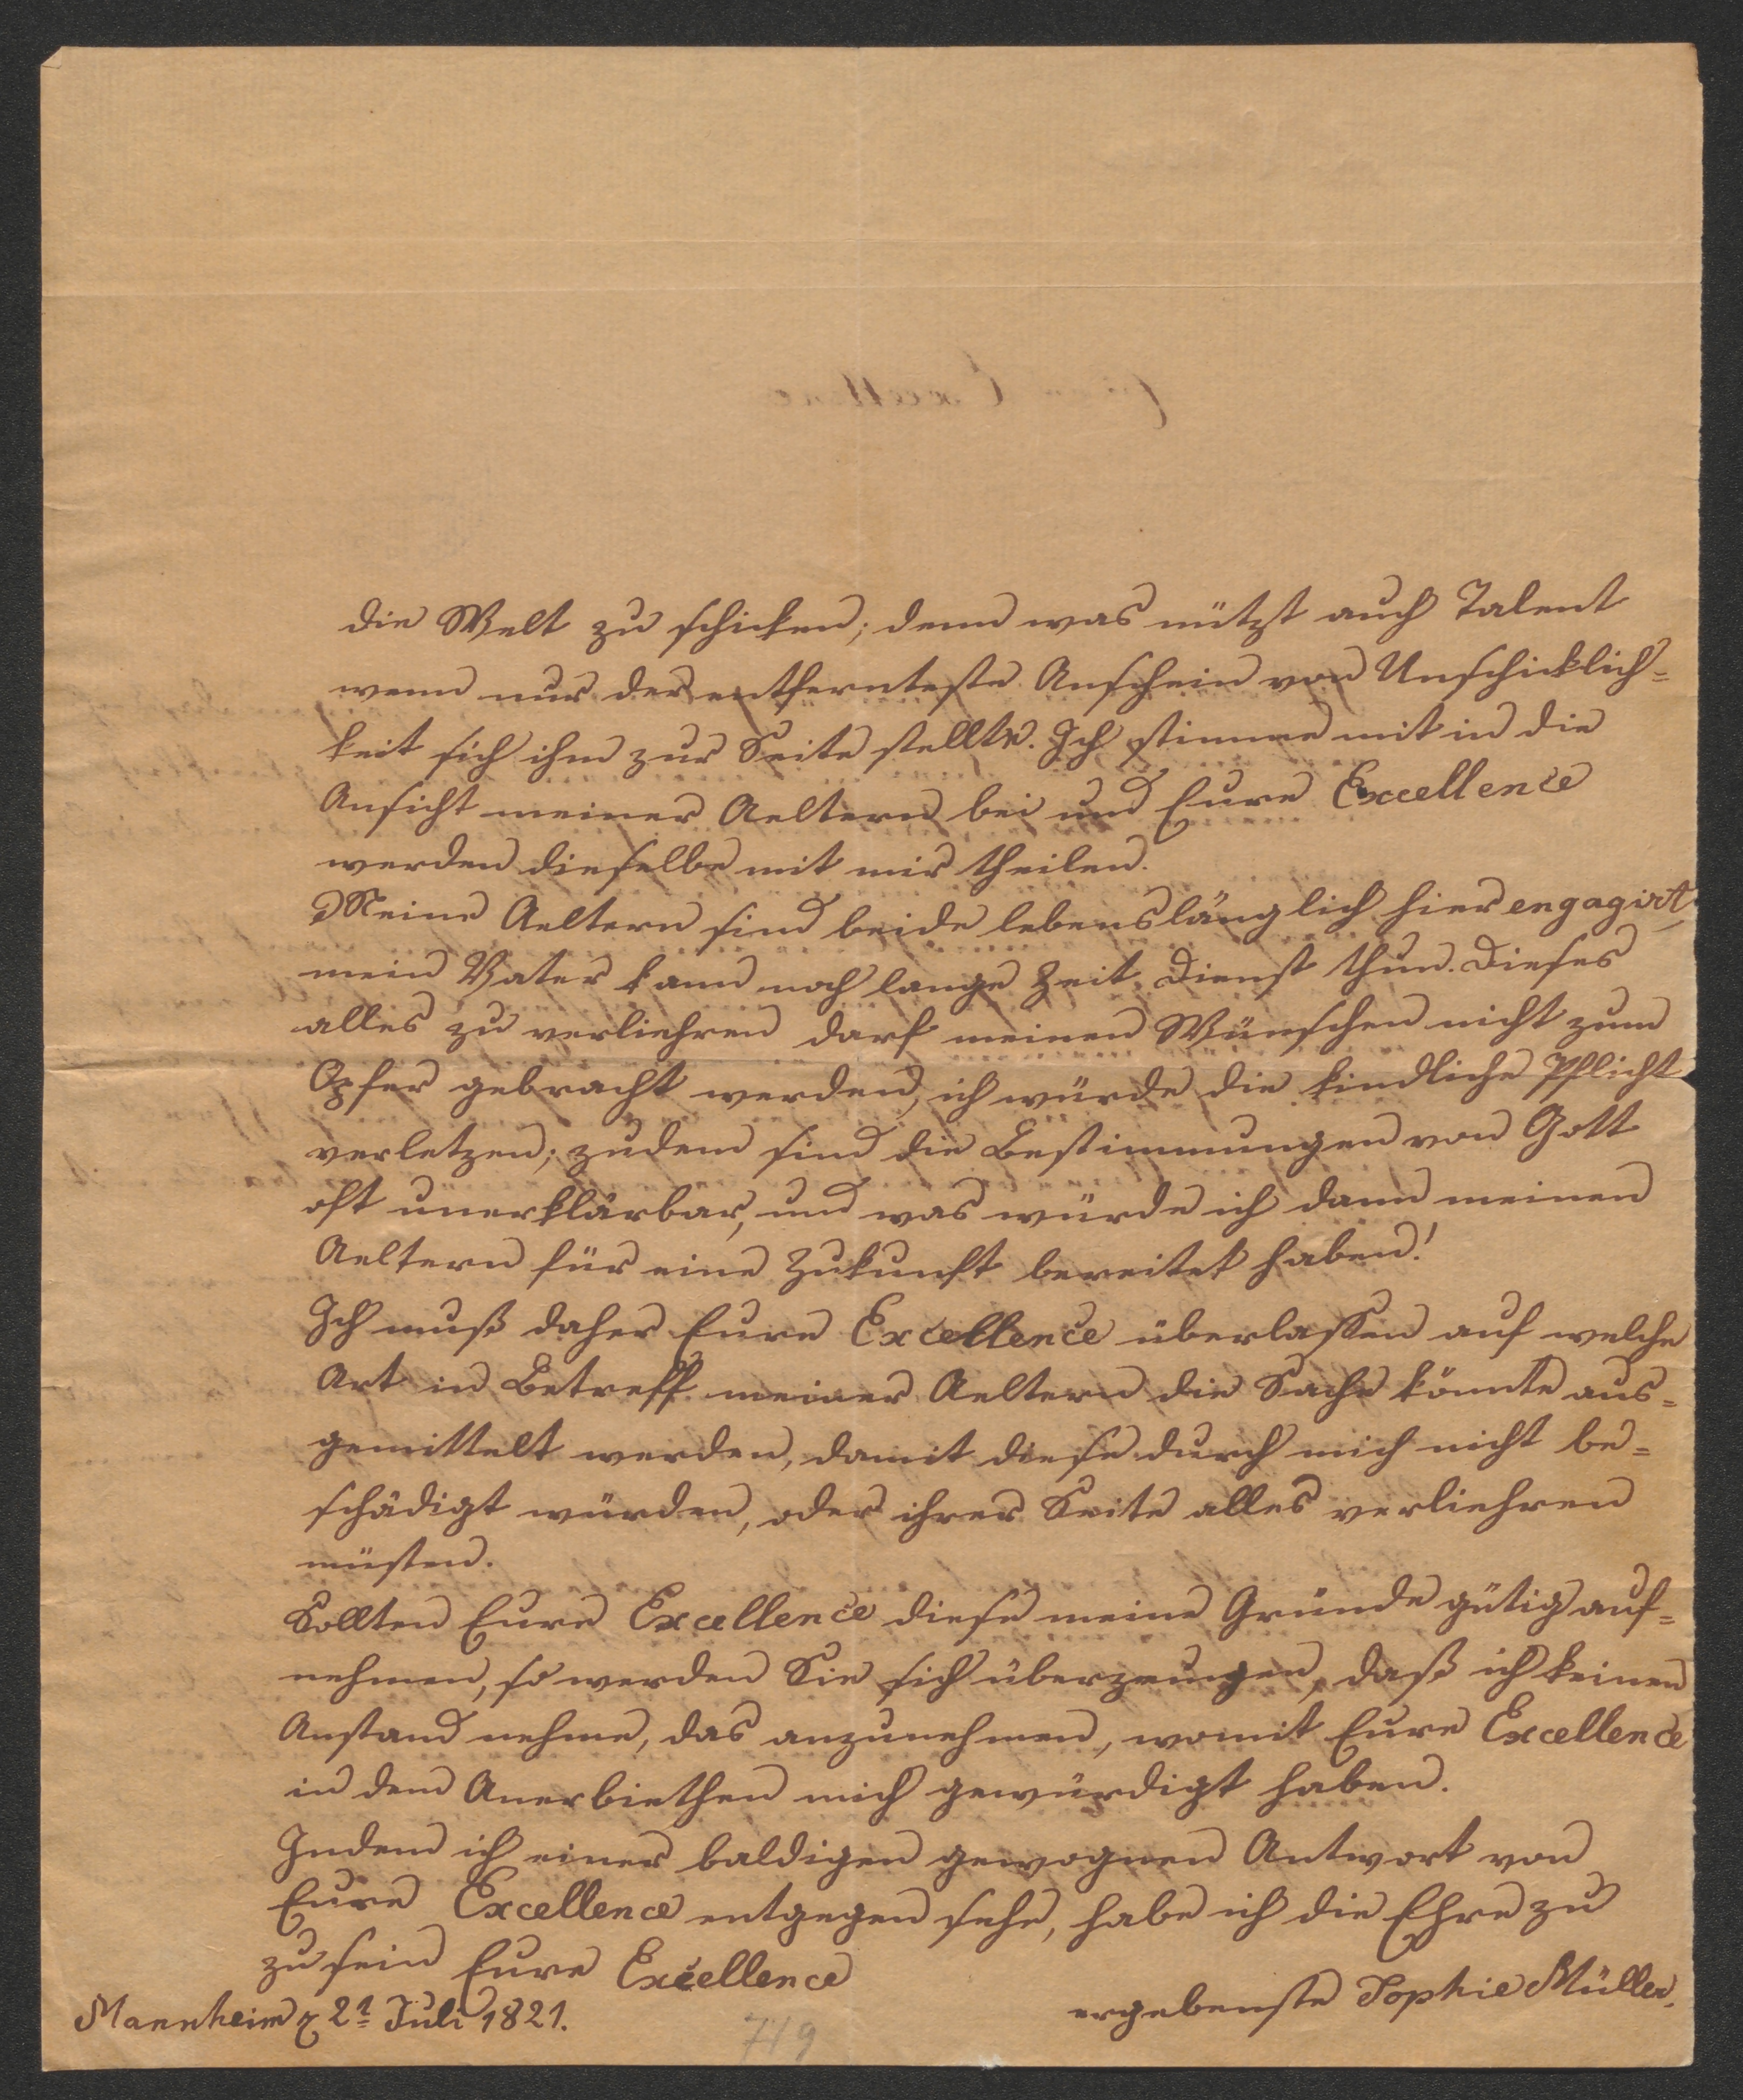 die Welt zu schicken; denn was nützt auch Talent
wenn nur der entfernteste Anschein von Unschicklich=
keit sich ihm zur Seite stellte. Ich stimme mit in die
Ansicht meiner Aeltern bei und Eure Excellence
werden dieselbe mit mir theilen.
Meine Aeltern sind beide lebenslänglich hier engagirt,
mein Vater kann noch lange Zeit Dienst thun. Dieses
alles zu verliehren darf meinen Wünschen nicht zum
Opfer gebracht werden, ich würde die kindliche Pflicht
verletzen; zudem sind die Bestimmungen von Gott
oft unerklärbar, und was würde ich dann meinen
Aeltern für eine Zukunft bereitet haben!
Ich muß daher Eure Excellence überlassen auf welche
Art in Betreff meiner Aeltern die Sache könnte aus=
gemittelt werden, damit diese durch mich nicht be=
schädigt würden, oder ihrer Seite alles verliehren
müsten.
Sollten Eure Excellence diese meine Gründe gütig auf=
nehmen, so werden Sie sich überzeugen, daß ich keinen
Anstand nehme, das anzunehmen, womit Eure Excellence
in dem Anerbiethen mich gewürdigt haben.
Indem ich einer baldigen gewognen Antwort von
Eure Excellence entgegen sehe, habe ich die Ehre zu
zu sein Eure Excellence
ergebenste Sophie Müller.
Mannheim 21 Juli 1821.
719